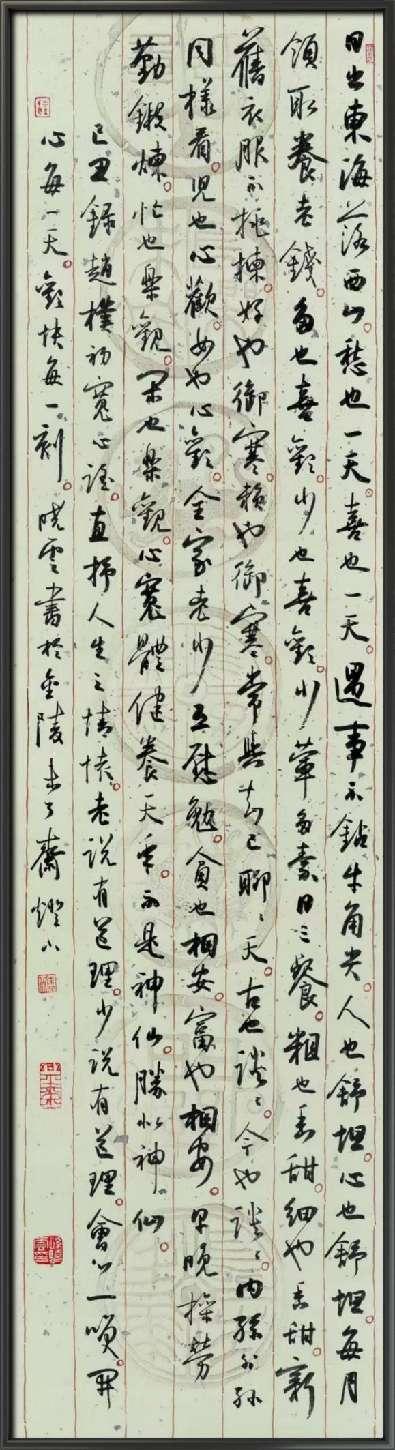 日出東海落西山愁也一天喜也一天遇事不鉆牛角尖人也舒坦心也舒坦每月
領取養老錢多也喜歡少也喜歡少葷多素日三餐粗也香甜細也香甜新
舊衣服不挑揀好也御寒賴也御寒常與知己聊々天古也談々今也談々內孫外孫
同樣看兒也心歡女也心歡全家老少互慰勉貧也相安富也相安早晚操勞
勤鍛煉忙也樂觀閑也樂觀心寬體健養天年不是神仙勝似神仙
己丑錄趙樸初寬心謠直抒人生之情懷老說有道理少說有道理會心一咲開
心每一天歡快每一刻曉雲書於金陵未了齋燈下